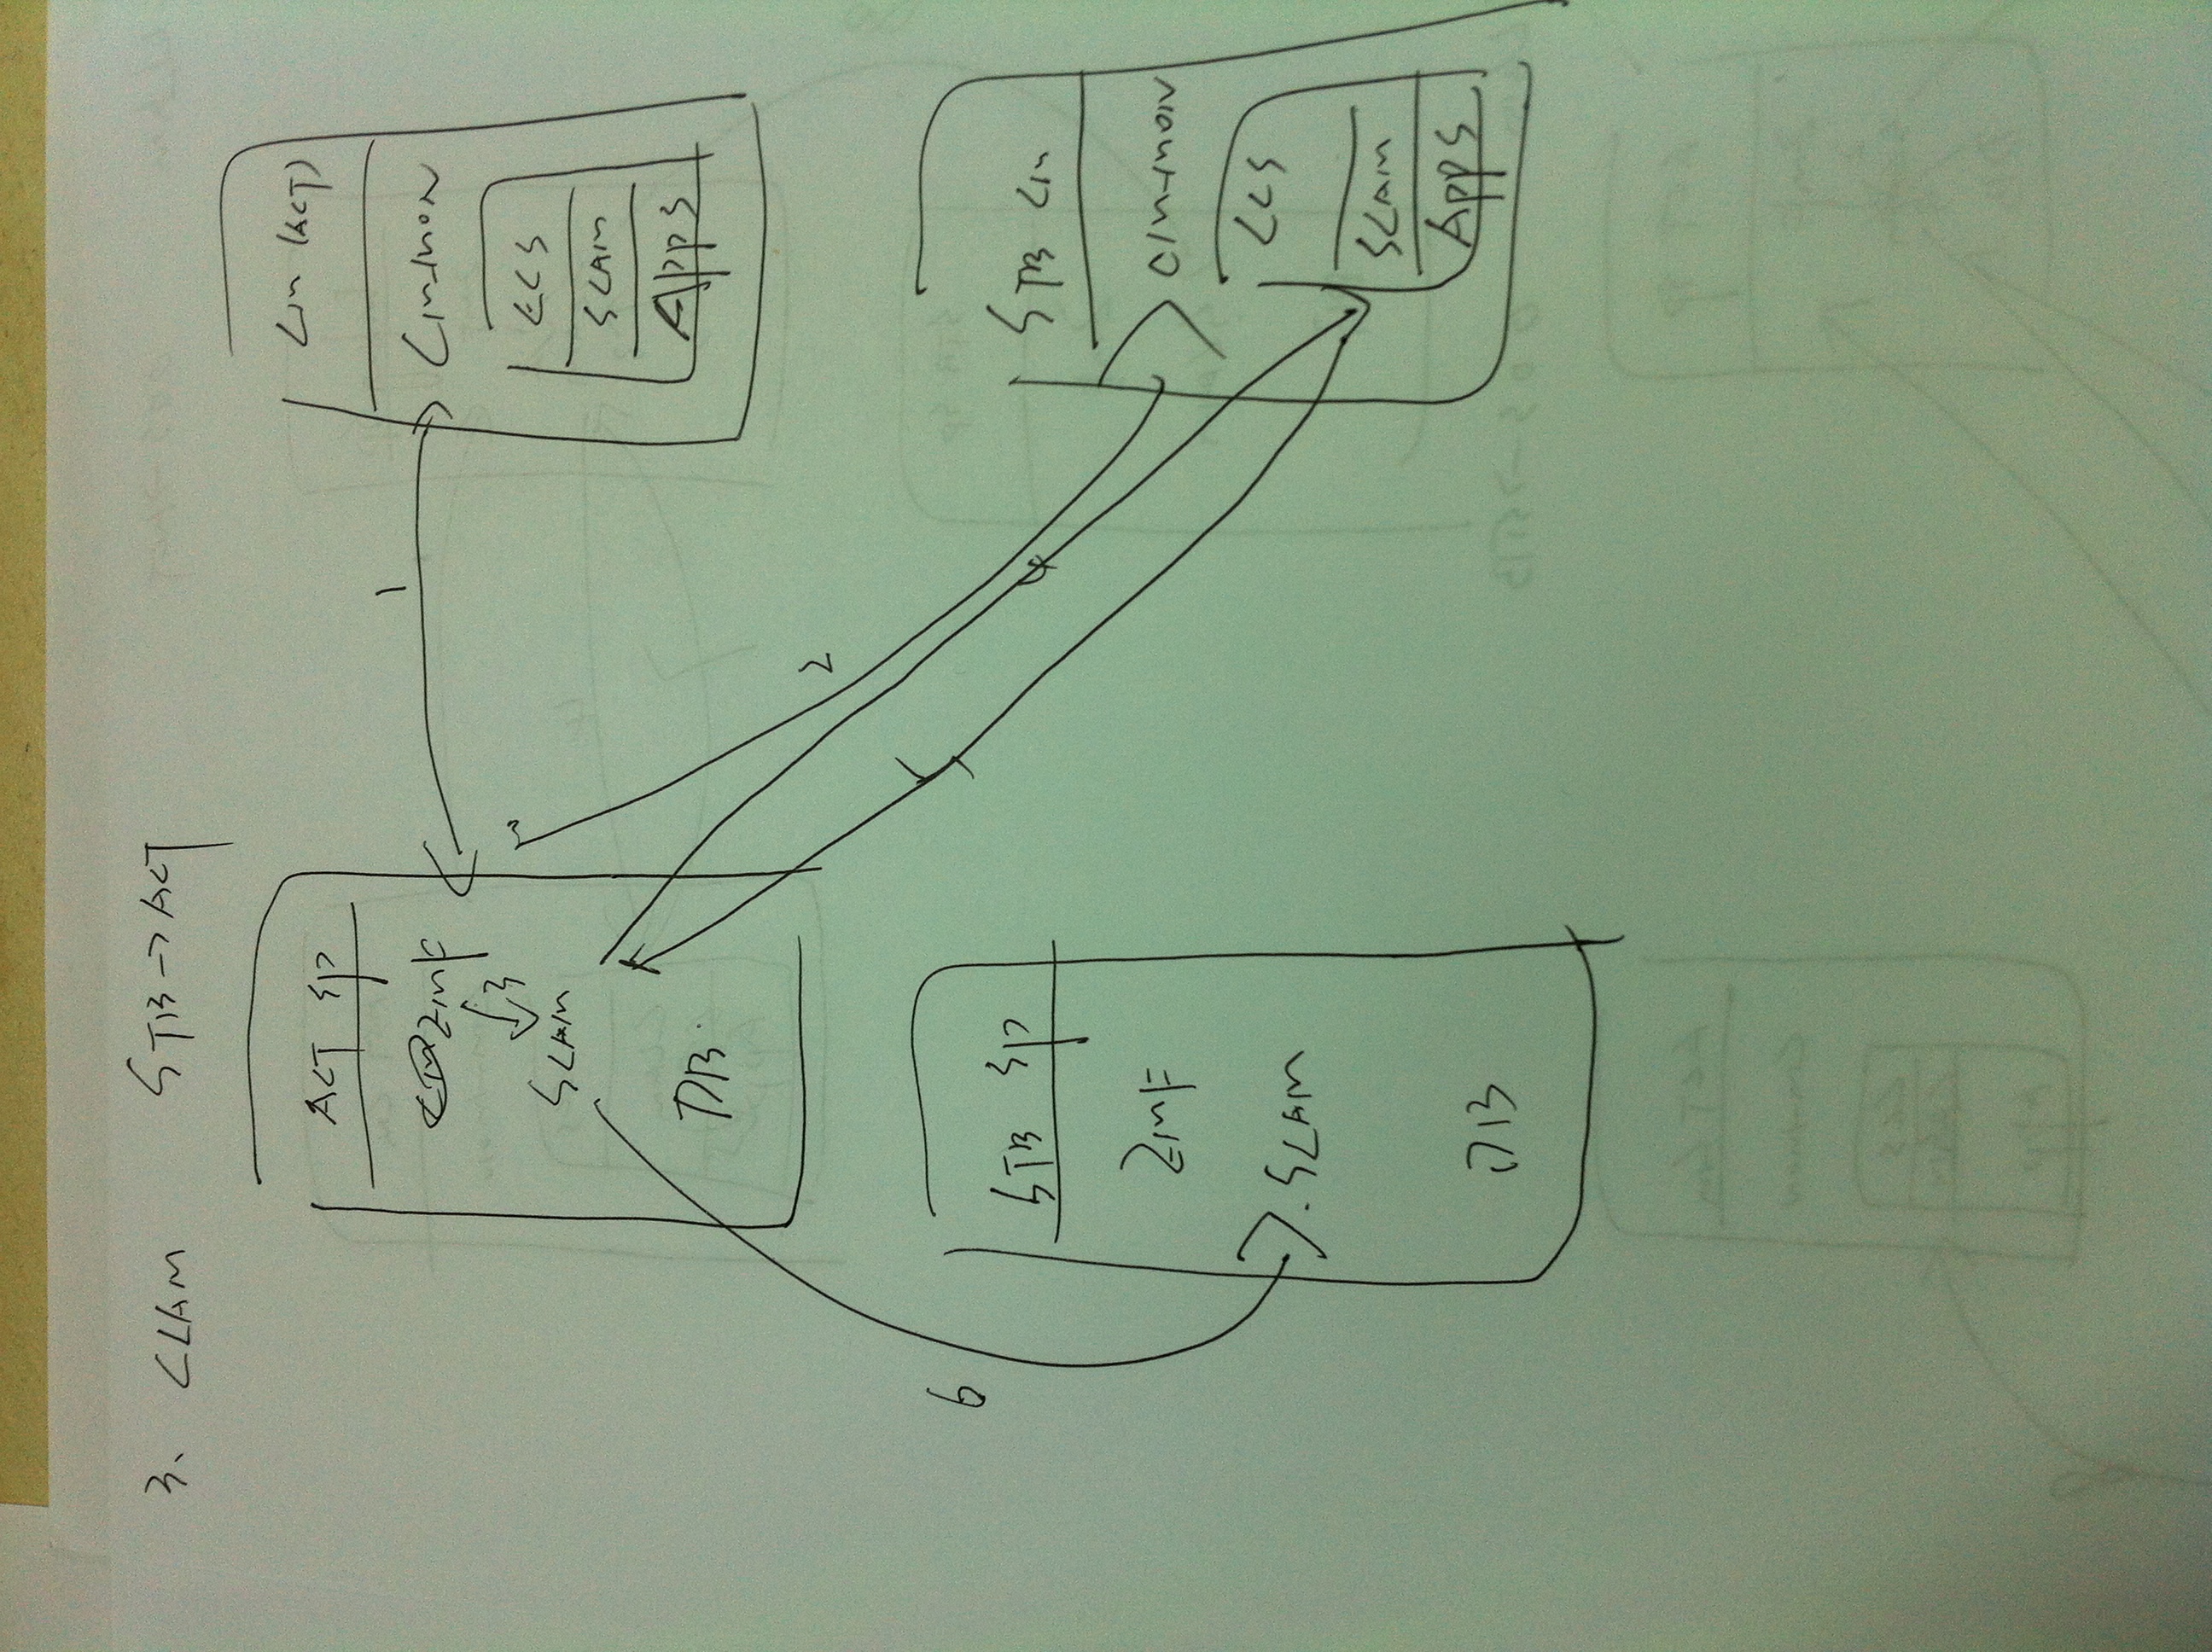 3. CLAM STB->ACT
ACT SP
ZMF
3
SCAM
DB
1
Cm (ACT)
Cm-mon
CCS
SCAM
Apps
2
4
5
6
STB SP
ZMF
SCAM
DB
STB Cm
Cm-mon
CCS
SCAM
Apps